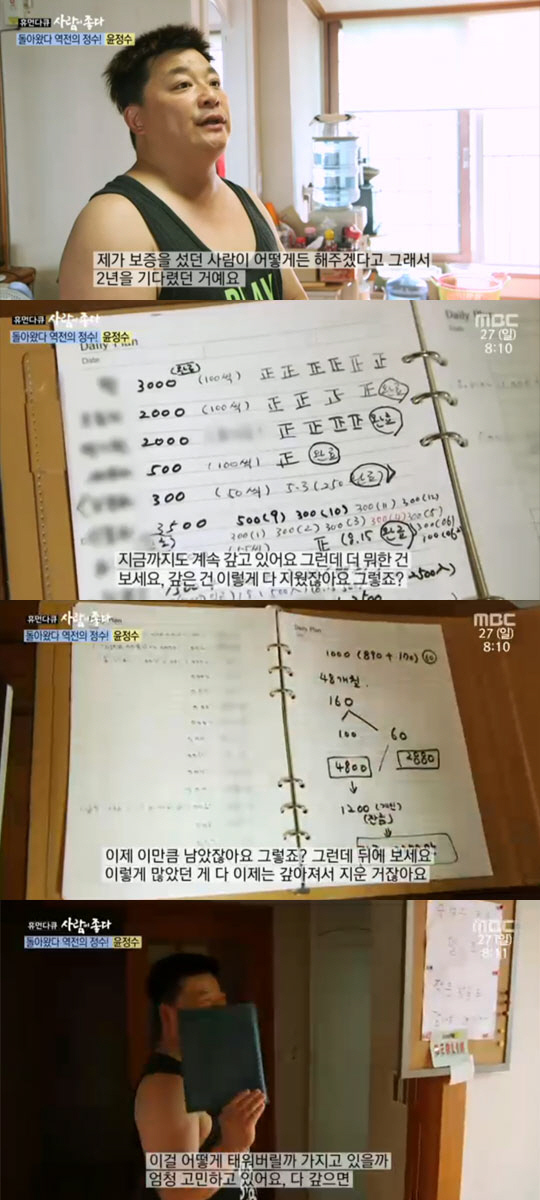 휴먼다큐 사람이 좋다
돌아왔다 역전의 정수! 윤정수
제가 보증을 섰던 사람이 어떻게든 해주겠다고 그래서
2년을 기다렸던 거예요
휴먼다큐 사람이 좋다
돌아왔다 역전의 정수! 윤정수
MBC
27(일)
8:10
Daily Plan
Date:
3000 (100씩) 正 正 正 正 正 正
완료
2000 (100씩) 正 正 正 正 완료
2000 正 正 正 正 완료
500 (100씩) 正 완료
300 (50씩) 5.3(250 완료)
3500 500(9) 300(10) 300(11) 300(12)
300(1) 300(2) 300(3) 300(4) 300(5)
正 (8.15 완료
지금까지도 계속 갚고 있어요 그런데 더 뭐한 건
보세요, 갚은 건 이렇게 다 지웠잖아요 그렇죠?
휴먼다큐 사람이 좋다
돌아왔다 역전의 정수! 윤정수
MBC
27(일)
8:10
Daily Plan
48개월.
160
100 60
4800 2880
1200
(잔금)
이제 이만큼 남았잖아요 그렇죠? 그런데 뒤에 보세요
이렇게 많았던 게 다 이제는 갚아져서 지운 거잖아요
휴먼다큐 사람이 좋다
돌아왔다 역전의 정수! 윤정수
MBC
27(일)
8:11
BERLIN
이걸 어떻게 태워버릴까 가지고 있을까
엄청 고민하고 있어요, 다 갚으면